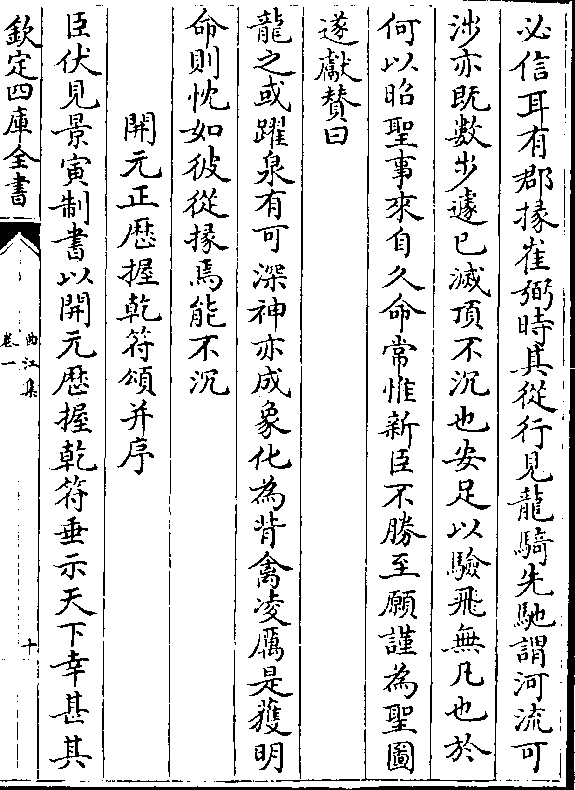 必信耳有郡掾崔弼時其從行見龍騎先馳謂河流可
涉亦既數步遽已滅頂不沉也安足以驗飛無凡也於
何以昭聖事來自久命常惟新臣不勝至願謹為聖圖
遂獻贊曰
龍之或躍泉有可深神亦成象化為背禽凌厲是蒦明
命則忱如彼從掾焉能不沉
開元正歴握乾符頌并序
臣伏見景寅制書以開元歴握乾符垂示天下幸甚其
欽定四庫全書
曲江集
卷一
十